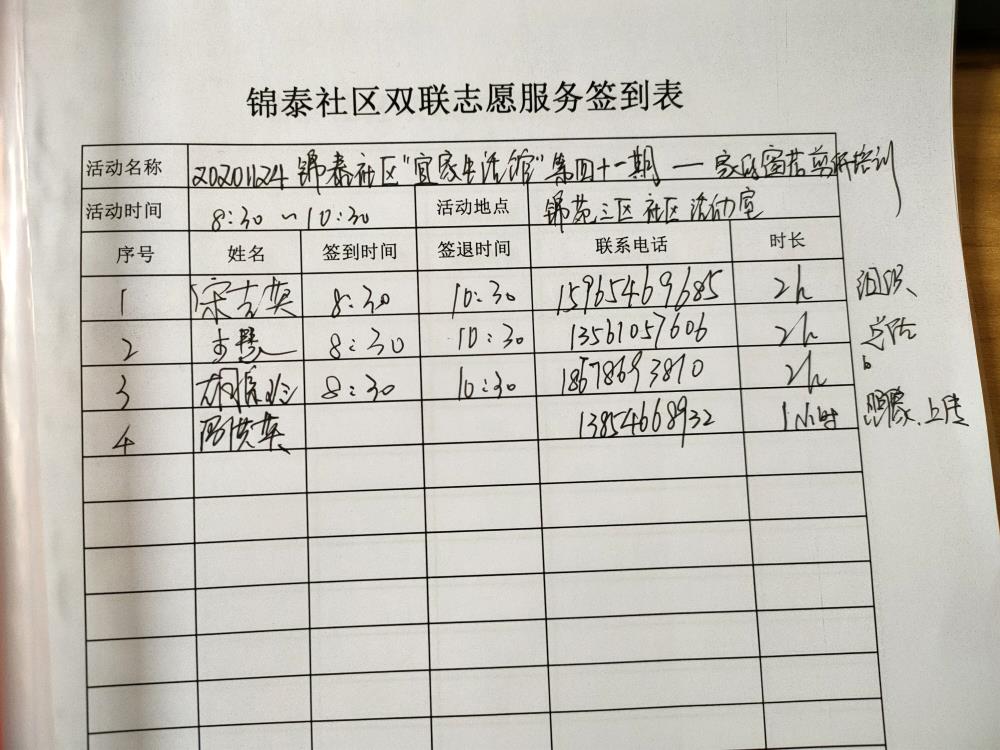 锦泰社区双联志愿服务签到表
活动名称 20201124 锦泰社区"宜家生活馆"第四十一期 — 窗花剪纸培训
活动时间 8:30 ~ 10:30 活动地点 锦苑三区社区活动室
序号 姓名 签到时间 签退时间 联系电话 时长
1 宋志英 8:30 10:30 15965469685 2h
2 8:30 10:30 13561057606 2h
3 8:30 10:30 18678693810 2h
4 13854668932 1小时
上传